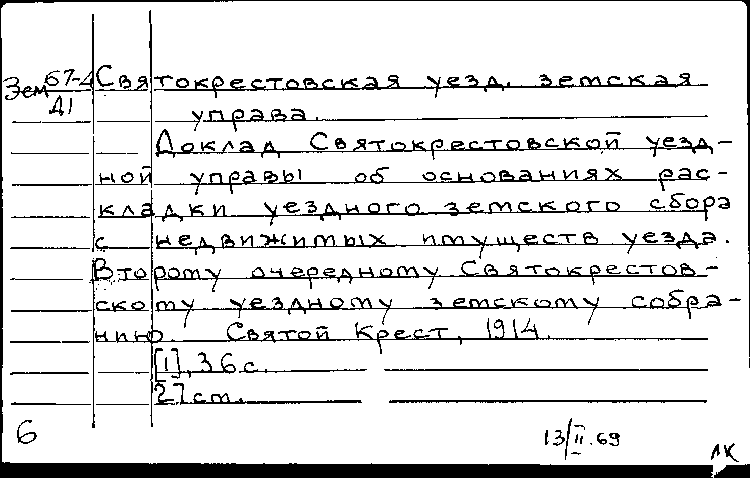 Зем 67-4 Святокрестовская уезд. земская
Д1 управа.
Доклад Святокрестовской уезд-
ной управы об основаниях рас-
кладки уездного земского сбора
с недвижимых имуществ уезда.
Второму очередному Святокрестов-
скому уездному земскому собра-
нию. Святой Крест, 1914.
[1], 36 с.
27 см.
6 13/II.69
ЛК